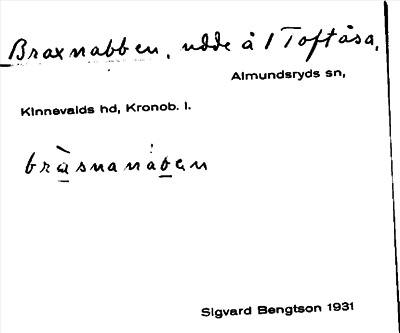 Braxnabben, udde å 1 Toftåsa,
Almundsryds sn,
Kinnevalds hd, Kronob. l.
bràsnanȧben
Sigvard Bengtson 1931